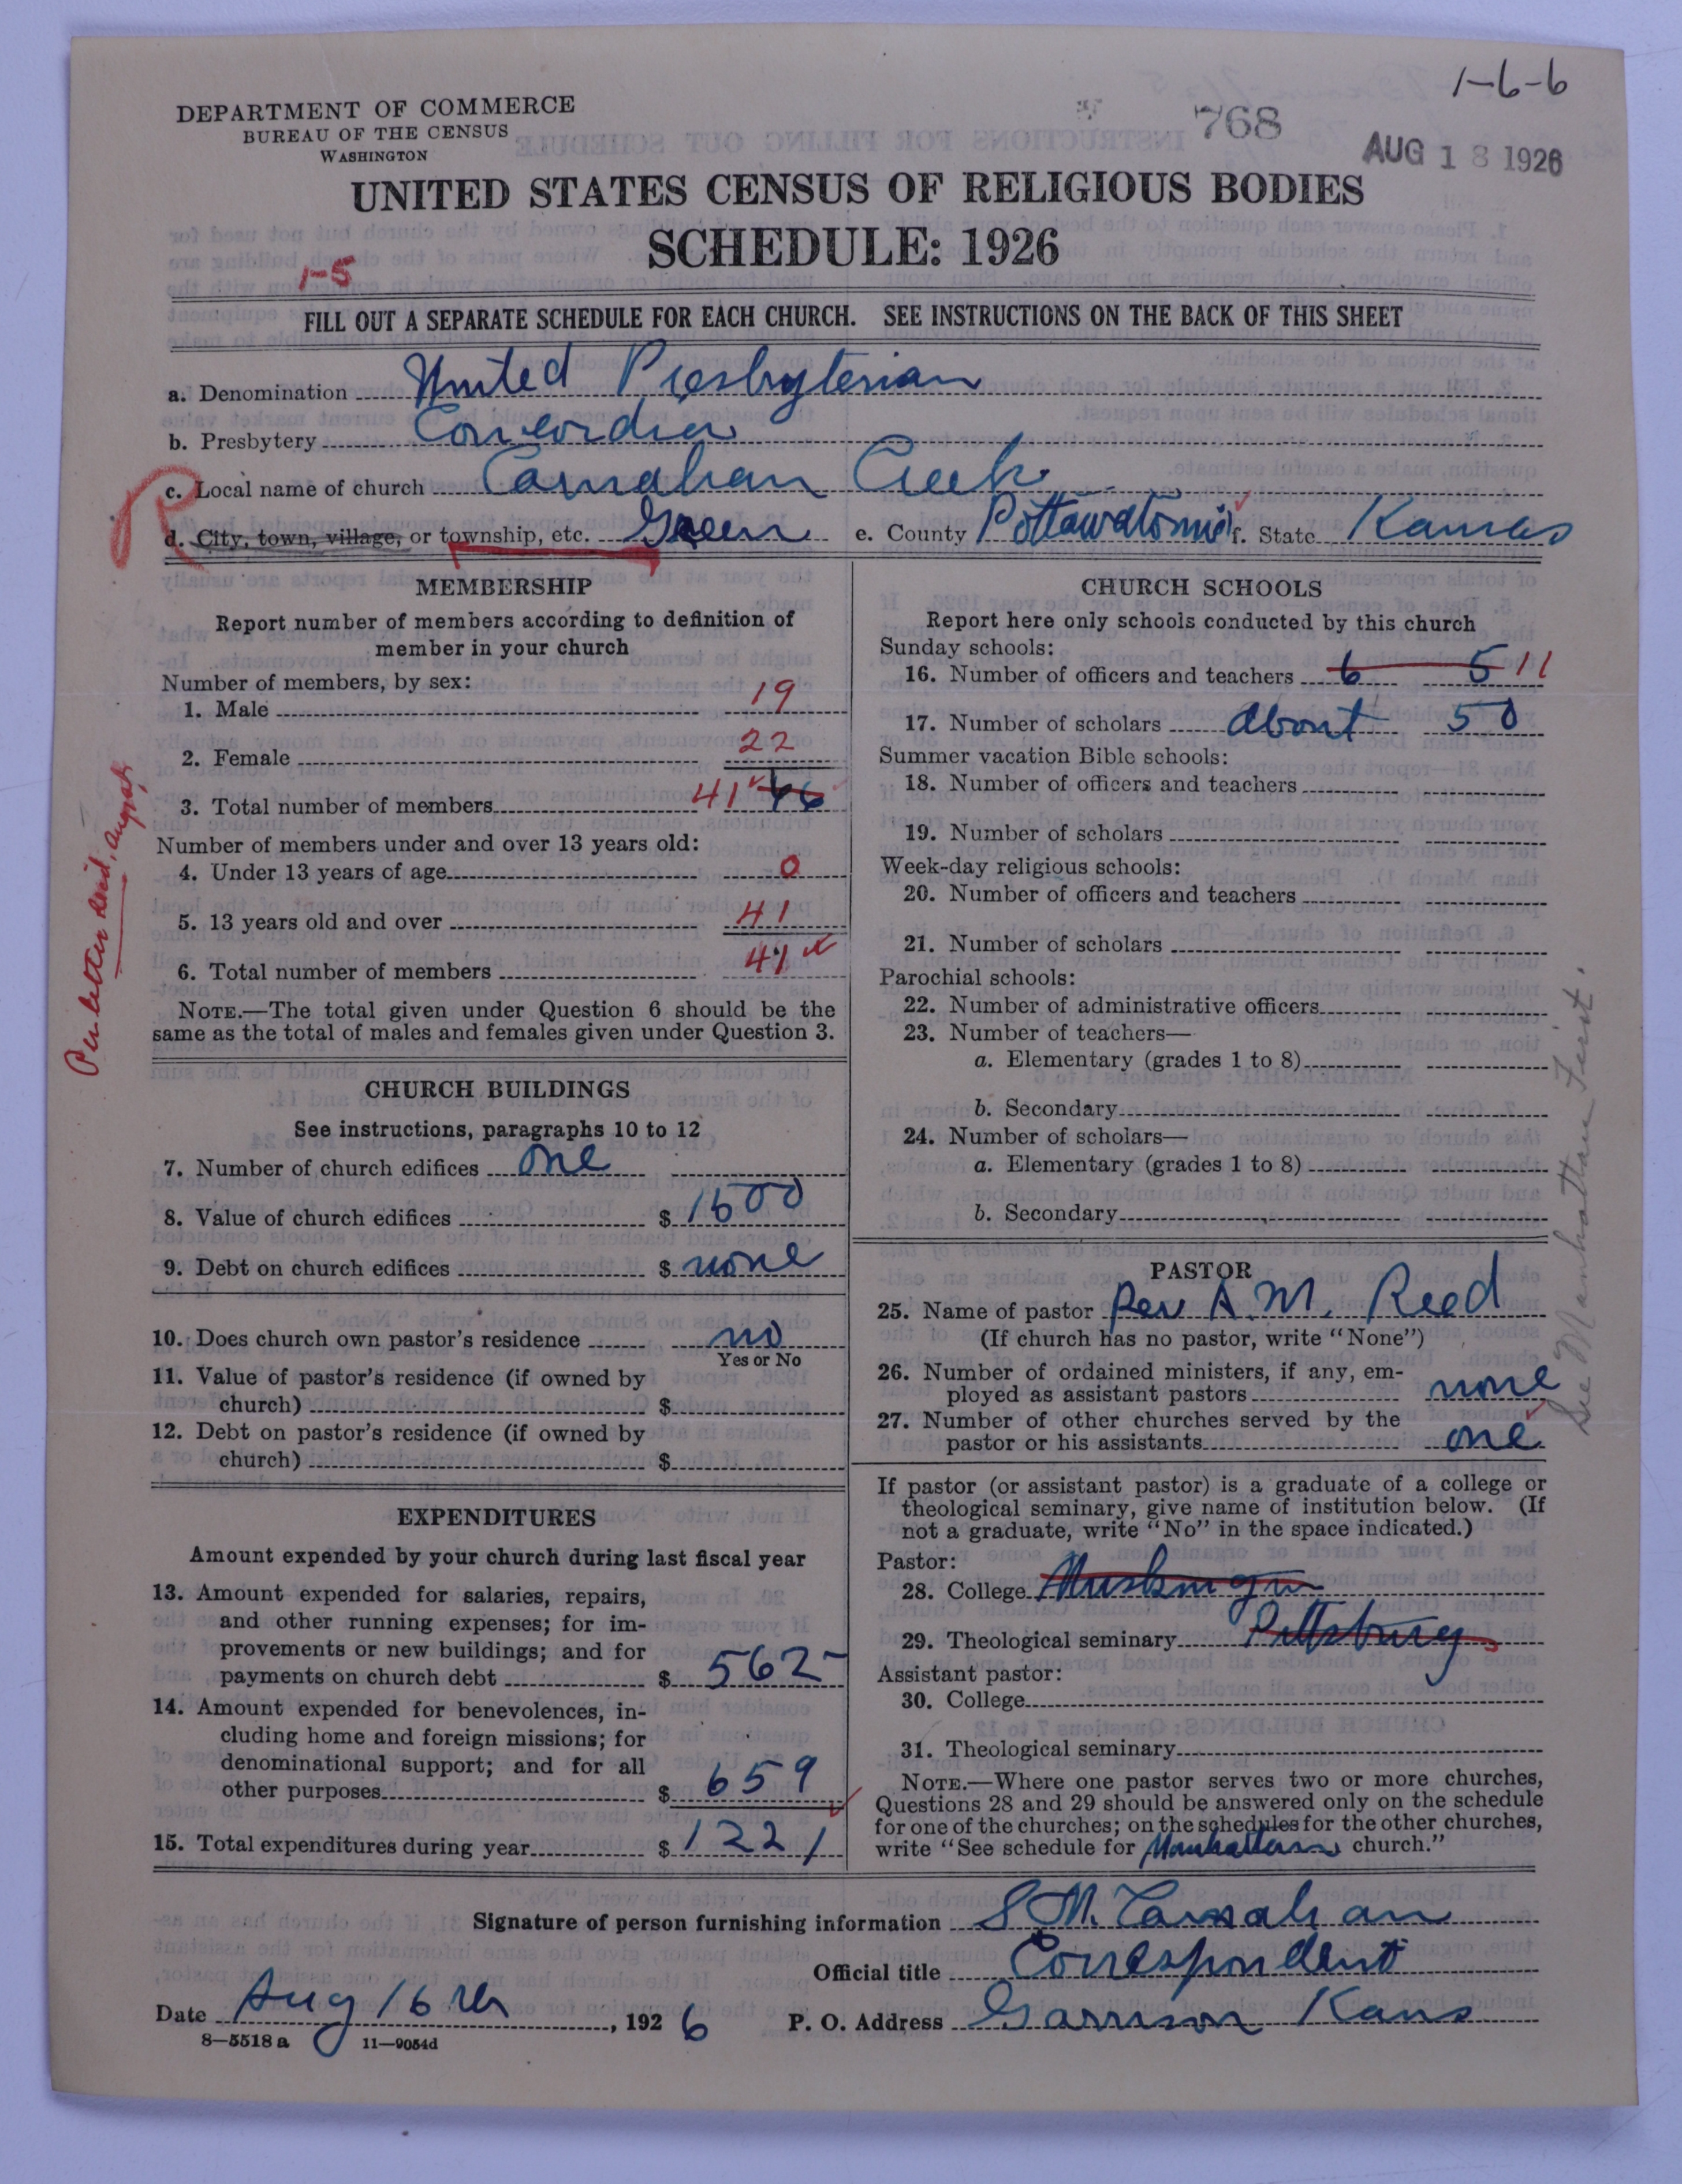 1-6-6
DEPARTMENT OF COMMERCE
BUREAU OF THE CENSUS
WASHINGTON
768
AUG 18 1926
UNITED STATES CENSUS OF RELIGIOUS BODIES
SCHEDULE: 1926
1-5
FILL OUT A SEPARATE SCHEDULE FOR EACH CHURCH. SEE INSTRUCTIONS ON THE BACK OF THIS SHEET
a. Denomination United Presbyterian
b. Presbytery Concordia
R
c. Local name of church Carnahan Creek
d. City, town, village, or township, etc. Green e. County Pottawatomie f. State Kansas
MEMBERSHIP
Report number of members according to definition of
member in your church
Number of members, by sex:
1. Male 19
2. Female 22
3. Total number of members 41 46
Number of members under and over 13 years old:
4. Under 13 years of age 0
5. 13 years old and over 41
6. Total number of members 41
NOTE.—The total given under Question 6 should be the
same as the total of males and females given under Question 3.
Per letter
CHURCH BUILDINGS
See instructions, paragraphs 10 to 12
7. Number of church edifices one
8. Value of church edifices $ 1500
9. Debt on church edifices $ none
10. Does church own pastor's residence no
Yes or No
11. Value of pastor's residence (if owned by
church) $
12. Debt on pastor's residence (if owned by
church) $
EXPENDITURES
Amount expended by your church during last fiscal year
13. Amount expended for salaries, repairs,
and other running expenses; for im-
provements or new buildings; and for
payments on church debt $ 562-
14. Amount expended for benevolences, in-
cluding home and foreign missions; for
denominational support; and for all
other purposes $ 659
15. Total expenditures during year $ 1221
CHURCH SCHOOLS
Report here only schools conducted by this church
Sunday schools:
16. Number of officers and teachers 6 5 11
17. Number of scholars about 50
Summer vacation Bible schools:
18. Number of officers and teachers
19. Number of scholars
Week-day religious schools:
20. Number of officers and teachers
21. Number of scholars
Parochial schools:
22. Number of administrative officers
23. Number of teachers—
a. Elementary (grades 1 to 8)
b. Secondary
24. Number of scholars—
a. Elementary (grades 1 to 8)
b. Secondary
See Manhattan First.
PASTOR
25. Name of pastor Rev A. M. Reed
(If church has no pastor, write "None")
26. Number of ordained ministers, if any, em-
ployed as assistant pastors none
27. Number of other churches served by the
pastor or his assistants one
If pastor (or assistant pastor) is a graduate of a college or
theological seminary, give name of institution below. (If
not a graduate, write "No" in the space indicated.)
Pastor:
28. College Muskingum
29. Theological seminary Pittsburg
Assistant pastor:
30. College
31. Theological seminary
NOTE.—Where one pastor serves two or more churches,
Questions 28 and 29 should be answered only on the schedule
for one of the churches; on the schedules for the other churches,
write "See schedule for Manhattan church."
Signature of person furnishing information S M. Carnahan
Official title Correspondent
Date Aug 16th, 1926 P. O. Address Garrison Kans
8—5518 a 11—9054d